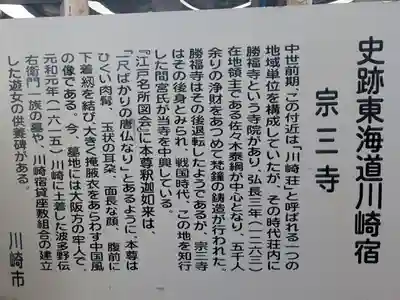 史跡東海道川崎宿
宗三寺
中世前期、この付近は「川崎荘」と呼ばれる一つの
地域単位を構成していたが、その時代荘内に
勝福寺という寺院があり、弘長三年(一二六三)
在地領主である佐々木泰綱が中心となり、五千人
余りの浄財をあつめて梵鐘の鋳造が行われた。
勝福寺はその後退転したようであるが、宗三寺
はその後身とみられ、戦国時代、この地を知行
した間宮氏が当寺を中興している。
『江戸名所図会』に「本尊釈迦如来は、
一尺ばかりの唐仏なり」とあるように、本尊は
ひくい肉髻、玉状の耳朶、面長な顔、腹前に
下着紐を結び、大きく掩腋衣をあらわす中国風
の像である。今、墓地には大阪方の牛人で、
元和元年(一六一五)川崎に土着した波多野伝
右衛門一族の墓や、川崎宿貸座敷組合の建立
した遊女の供養碑がある。
川崎市